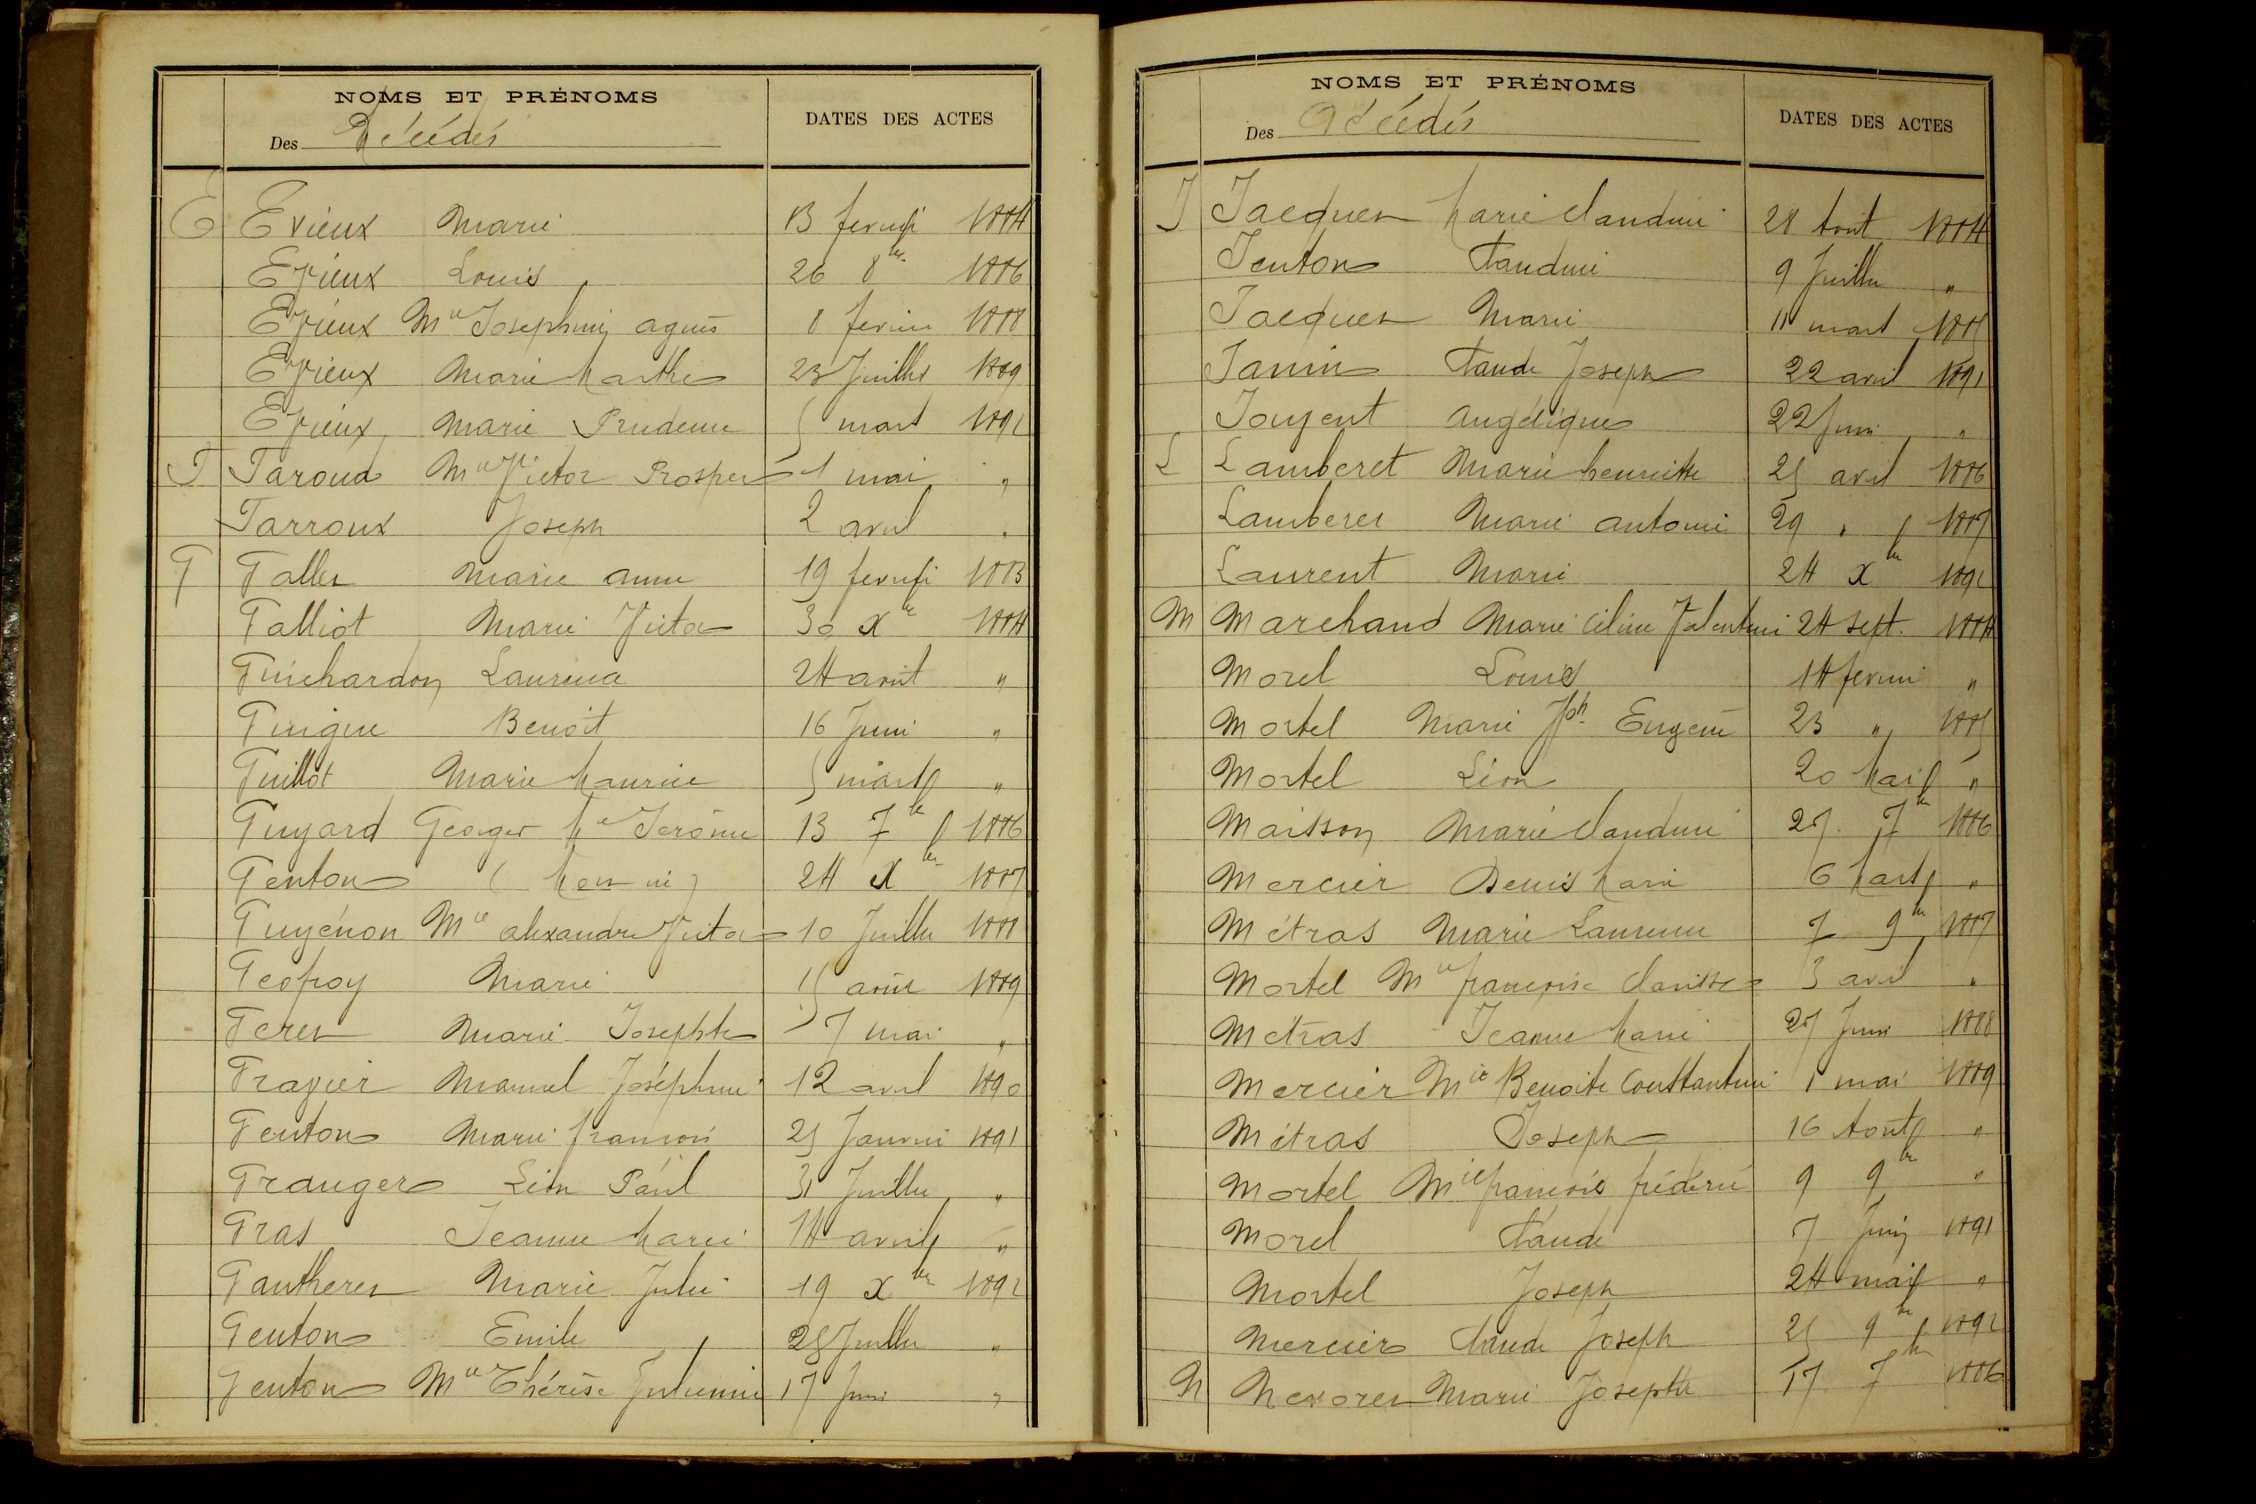 NOMS ET PRÉNOMS
Des Décédés
DATES DES ACTES
E Evieux Marie 13 fevrier 1884
Evieux Louis 26 8bre 1886
Evieux Mie Josephine agnès 8 fevrier 1888
Evieux Marie Marthe 23 Juillet 1889
Evieux Marie Prudence 5 mars 1892
F Faroud Mie Victor Prosper 1 mai "
Farroux Joseph 2 avril "
G Galles Marie anne 19 fevrier 1883
Galliot Marie Victor 30 Xbre 1884
Guichardon Laurence 24 août "
Guigue Benoit 16 Juin "
Guillot Marie Maurice 5 mars "
Guyard Georges Mie Jérôme 13 7bre 1886
Genton (Mort né) 24 Xbre 1887
Guyénon Mie alexandre Victor 10 Juillet 1888
Geofroy Marie 15 août 1889
Geres Marie Josephte 7 mai "
Gravier Manuel Joséphine 12 avril 1890
Genton Marie françois 25 Janvier 1891
Granger Léon Paul 31 Juillet "
Gras Jeanne Marie 14 avril "
Gautheres Marie Julie 19 Xbre 1892
Genton Emile 28 Juillet "
Genton Mie Thérèse Julienne 17 Juin "
NOMS ET PRÉNOMS
Des Décédés
DATES DES ACTES
J Jacques Marie Claudine 28 Août 1884
Jenton Claudine 9 Juillet "
Jacques Marie 11 mars 1885
Janin Claude Joseph 22 avril 1891
Jougent Angélique 22 Juin "
L Lamberet Marie henriette 25 avril 1886
Lamberet Marie antoine 29 " 1887
Laurent Marie 24 Xbre 1892
M Marchand Marie Céline Valentine 24 sept. 1884
Morel Louis 14 fevrier "
Mortel Marie Jph Eugène 23 " 1885
Mortel Léon 20 Mai "
Maisson Marie Claudine 27 7bre 1886
Mercier Denis Marie 6 Mars "
Métras Marie Laurence 7 9bre 1887
Mortel Mie françoise Clarisse 3 avril "
Métras Jeanne Marie 27 Juin 1888
Mercier Mie Benoite Constantine 1 mai 1889
Métras Joseph 16 Août "
Mortel Mie françois frédéric 9 9bre "
Morel Claude 7 Juin 1891
Mortel Joseph 24 mai "
Mercier Claude Joseph 25 9bre 1892
N Nesores Marie Josephte 17 7bre 1886